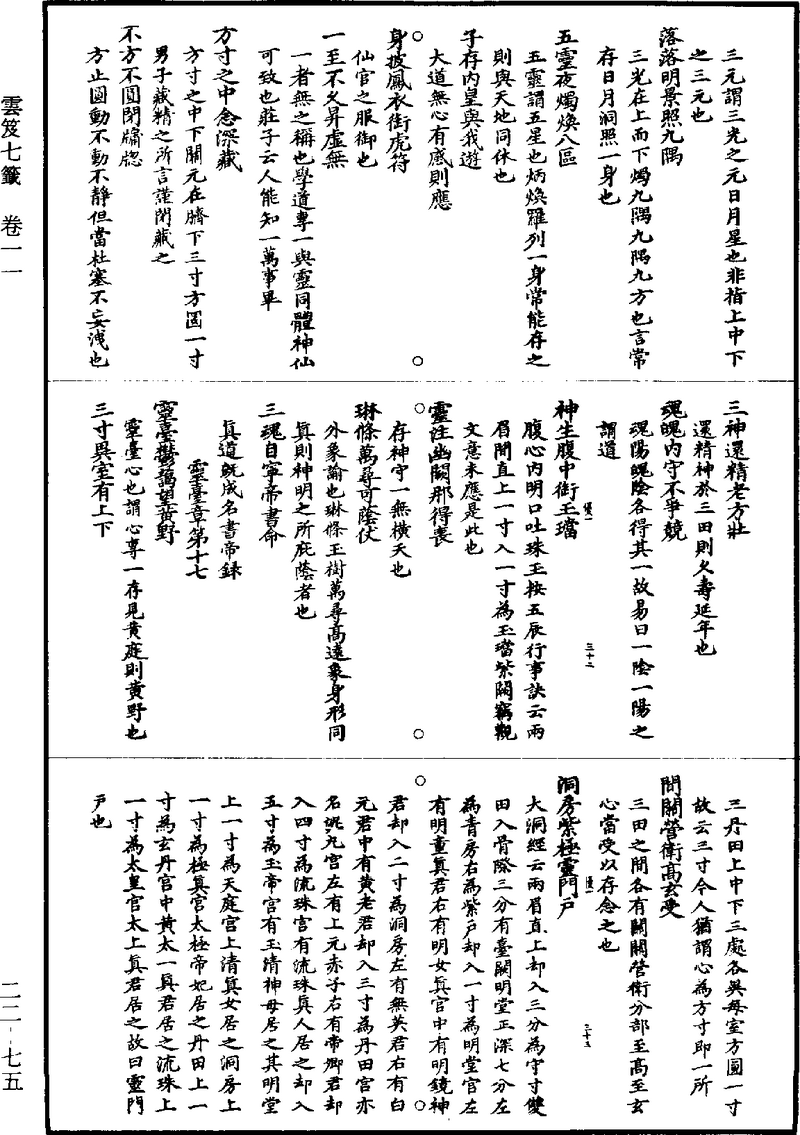 三元謂三光之元日月星也非指上中下
之三元也
落落明景照九隅
三光在上而下燭九隅九隅九方也言常
存日月洞照一身也
五靈夜燭煥八區
五靈謂五星也炳煥羅列一身常能存之
則與天地同休也
子存内皇與我遊
大道無心有感則應
身披鳳衣銜虎符
仙官之服御也
一至不久昇虛無
一者無之稱也學道專一與靈同體神仙
可致也莊子云人能知一萬事畢
方寸之中念深藏
方寸之中下關元在臍下三寸方圓一寸
男子藏精之所言謹閉藏之
不方不圓閉牖窓
方止圓動不動不静但當杜塞不妄洩也
三神還精老方壯
還精神於三田則久壽延年也
魂魄内守不爭競
魂陽魄陰各得其一故易曰一陰一陽之
謂道
神生腹中銜玉璫
腹心内明口吐珠玉按五辰行事訣云兩
眉間直上一寸入一寸為玉璫紫闕竊觀
文意未應是此也
靈注幽闕那得喪
存神守一無横夭也
琳條萬尋可蔭仗
外象諭也琳條玉樹萬尋髙遠象身形同
真則神明之所庇蔭者也
三魂自寧帝書命
真道旣成名書帝録
靈臺章第十七
靈臺鬱藹望黄野
靈臺心也謂心專一存見黄庭則黄野也
三寸異室有上下
三丹田上中下三處各異每室方圓一寸
故云三寸令人猶謂心為方寸即一所
間關營衛髙玄受
三田之間各有闗關營衛分部至髙至玄
心當受以存念之也
洞房紫極靈門户
大洞經云兩眉直上却入三分為守寸雙
田入骨際三分有臺闕明堂正深七分左
為青房右為紫户却入一寸為明堂宫左
有明童真君右有明女真官中有明鏡神
君却入二寸為洞房左有無英君右有白
元君中有黄老君却入三寸為丹田宫亦
名泥九宫左有上元赤子右有帝卿君却
入四寸為流珠宫有流珠真人居之却入
五寸為玉帝宫有玉清神母居之其明堂
上一寸為天庭宫上清真女居之洞房上
一寸為極真宫太極帝妃居之丹田上一
寸為玄丹宫中黄太一真君居之流珠上
一寸為太皇宫太上真君居之故曰靈門
户也
雲笈七籤 卷一一
二二-七五
三十二
三十三